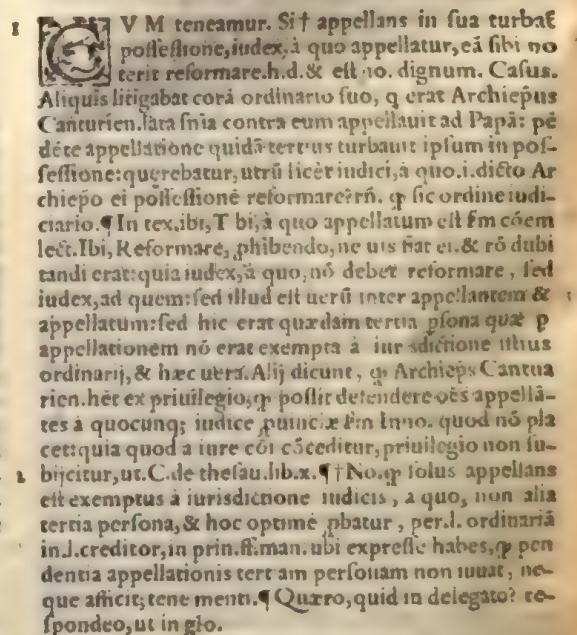 1 CVM teneamur. Si † appellans in sua turbat̃
possessione, iudex, à quo appellatur, eã sibi no
terit reformare. h. d. & est no. dignum. Casus.
Aliquis litigabat corã ordinario suo, q erat Archiep̃us
Canturien. lata snĩa contra eum appellauit ad Papã: pẽ
dẽte appellatione quidã tertius turbauit ipsum in pos-
sessione: querebatur, utrũ licèt iudici, à quo. i. dicto Ar
chiep̃o ei possessionẽ reformare? rñ. ꝙ sic ordine iudi-
ciario. ¶ In tex. ibi, T bi, à quo appellatum est s̃m cõem
lect. Ibi, Reformare, ꝓhibendo, ne uis fiat ei. & rõ dubi
tandi erat: quia iudex, à quo, nõ debet reformare, sed
iudex, ad quem: sed illud est uerũ inter appellantem &
appellatum: sed hic erat quædam tertia ꝑsona quæ ꝑ
appellationem nõ erat exempta à iurisdictione illius
ordinarij, & hæc uera. Alij dicunt, ꝙ Archiep̃s Cantua
rien. hẽt ex priuilegio, ꝙ possit defendere oẽs appellã-
tes à quocunq; iudice ꝓuinciæ s̃m Inno. quod nõ pla
cet: quia quod a iure cõi cõceditur, priuilegio non su-
2 bijcitur, ut. C. de thesau. lib. x. ¶ † No. ꝙ solus appellans
est exemptus à iurisdictione iudicis, a quo, non alia
tertia persona, & hoc optimè ꝓbatur, per. l. ordinariã
in. l. creditor, in prin. ff. man. ubi expresse habes, ꝙ pen
dentia appellationis tertiam personam non iuuat, ne-
que afficit; tene menti. ¶ Quæro, quid in delegato? re-
spondeo, ut in glo.